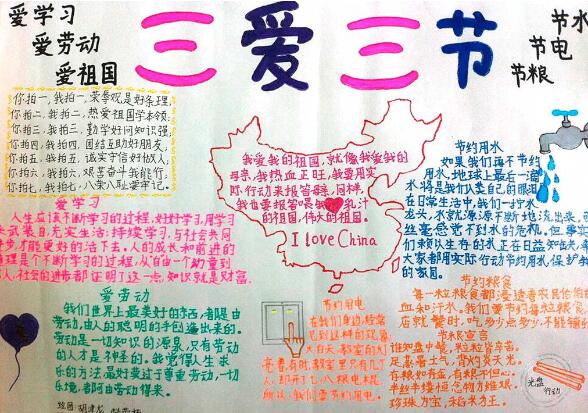 爱学习
爱劳动
爱祖国
三爱三节
节水
节电
节粮
你拍一,我拍一,荣辱观是好条理,
你拍二,我拍二,热爱祖国学本领;
你拍三,我拍三,勤学好问知识强,
你拍四,我拍四,团结互助好朋友,
你拍五,我拍五,诚实守信好做人,
你拍六,我拍六,艰苦奋斗我能行,
你拍七,我拍七,八荣八耻要牢记。
我爱我的祖国,就像我爱我的
母亲,我热血正旺,我要用实
际行动来报答母亲,同样,
我也要报答喂我乳汁
的祖国,伟大的祖国。
I love China
节约用水
如果我们再不节约
用水,地球上最后一滴
水将是我们人类自己的眼泪
在日常生活中,我们一拧水
龙头,水就源源不断地流出来,
丝毫感觉不到水的危机。但事实
们赖以生存的水正在日益短缺
大家都用实际行动节约用水,保护我
的家园。
爱学习
人生应该不断学习的过程,好好学习,用学习
来武装自己,充实生活;持续学习,与社会共同
进步,才能更好的活下去。人的成长和前进的
道理是个不断学习的过程,从自由一个幼童到
人,社会的进步都证明了这一点,知识就是财富.
爱劳动
我们世界上最美好的东西,都是由
劳动,由人的聪明的手创造出来的。
劳动是一切知识的源泉,只有劳动
的人才是神经的。我觉得人生求
乐的方法,最好莫过于尊重劳动,一切
乐境,都阿由劳动得来。
节约用电
在我们身边,经常
见到这样的现象
大白天,教室的灯
亮着;有时,教室里只有几个
人,却开了八根电棒,是
所以,我们要节约用电。
节约粮食
每一粒粮食都浸透着农民伯伯的
血和汗水。我们要节约每粒粮食
店就餐时,吃多少点多少,不能铺
节粮宣言
谁知盘中餐,粒粒皆辛苦。
足是黄土背,背灼炎天光。
在粮如有金,有粮不积一心。
半丝半缕恒念物力维艰.
珍珠为宝,稻米为王。
光盘
行动